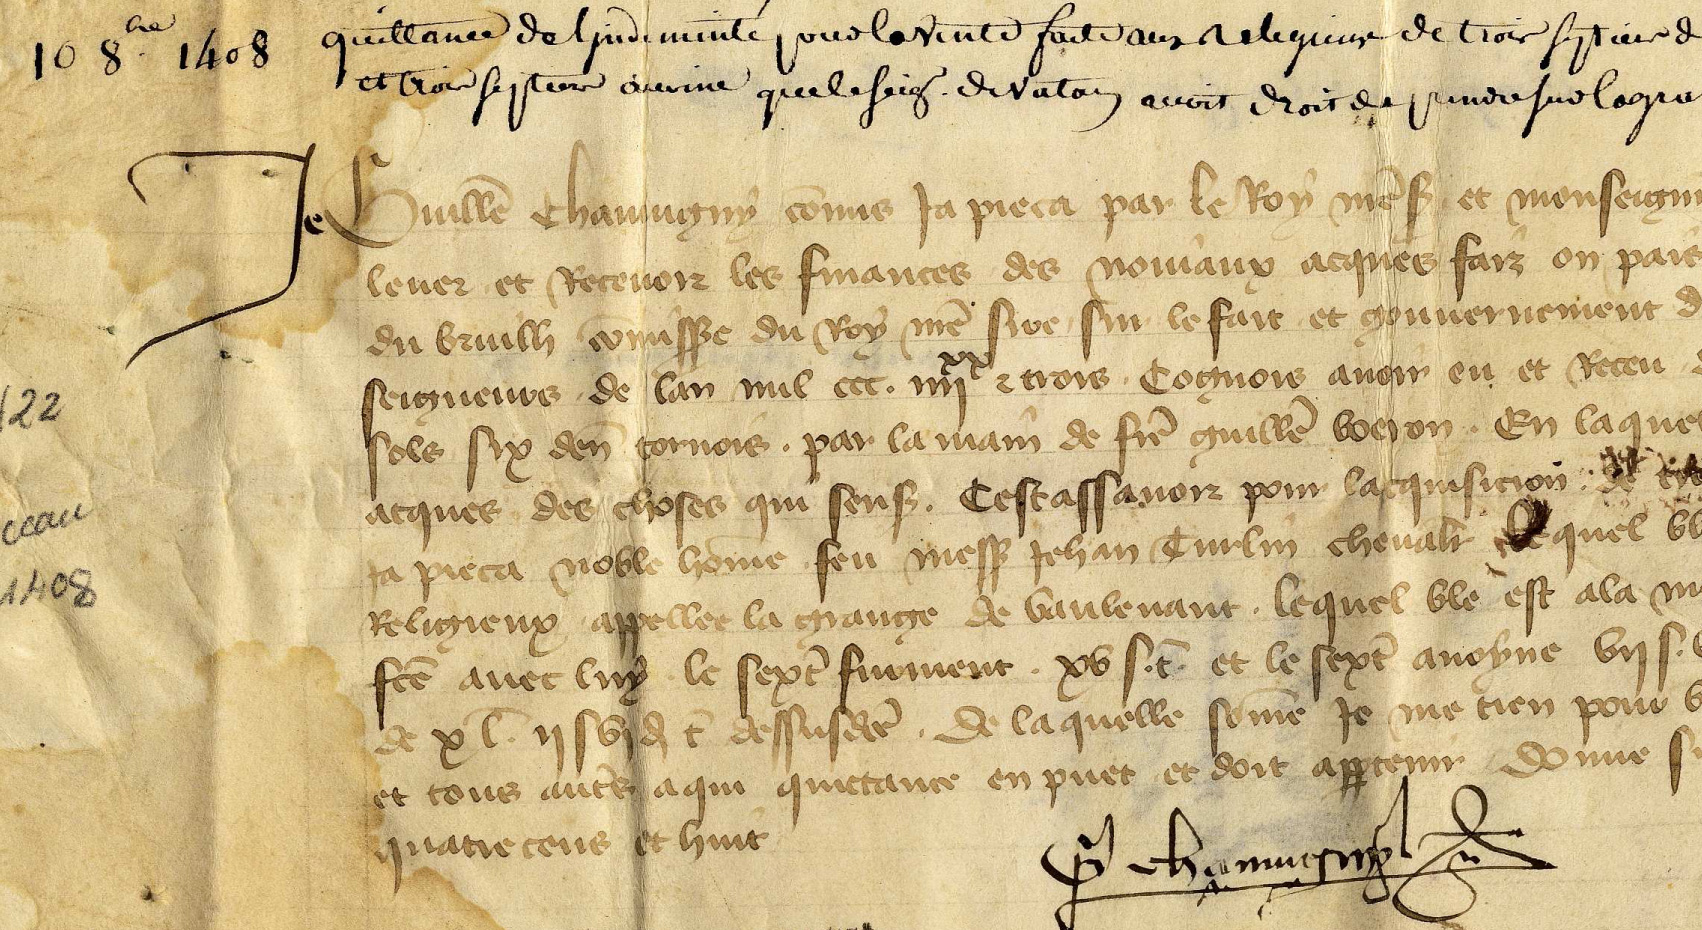 10 8bre 1408
quittance de lindemnite pour la vente faite aux Religieux de trois septiers d
et trois septiers avoine que le seigr. de vatan avoit droit de prendre sur la gra
Je Guillē Chamugny cōmis Ja pieca par le Roy nrē sr. et monseign
lever et Recevoir les finances des nouiaux acques fais on pais
du bruilh cōmissre du Roy nrē sire sur le fait et gouvernement d
seigneurs de lan mil ccc. iiii xx & trois. Cognois avoir eu et Receu
122
sols six den tornois. par la main de frē guillē voeron. En laquel
acques des choses qui sens. Cestassavoir pour lacquisicion
ceau
Ja pieca noble home feu mess Jehan Turlin chevalr lequel bl
1408
Religieux appellee la grange de vaulevant. lequel ble est ala m
avec luy le sext froment. xv s.t. et le sext avoyne vii s.
de x l. ii s vi d t dessusd. De laquelle some Je me tien pour
et tous autrs a qui quictance en puet et doit apptenir Donne
quatre cens et huit
Chamugny